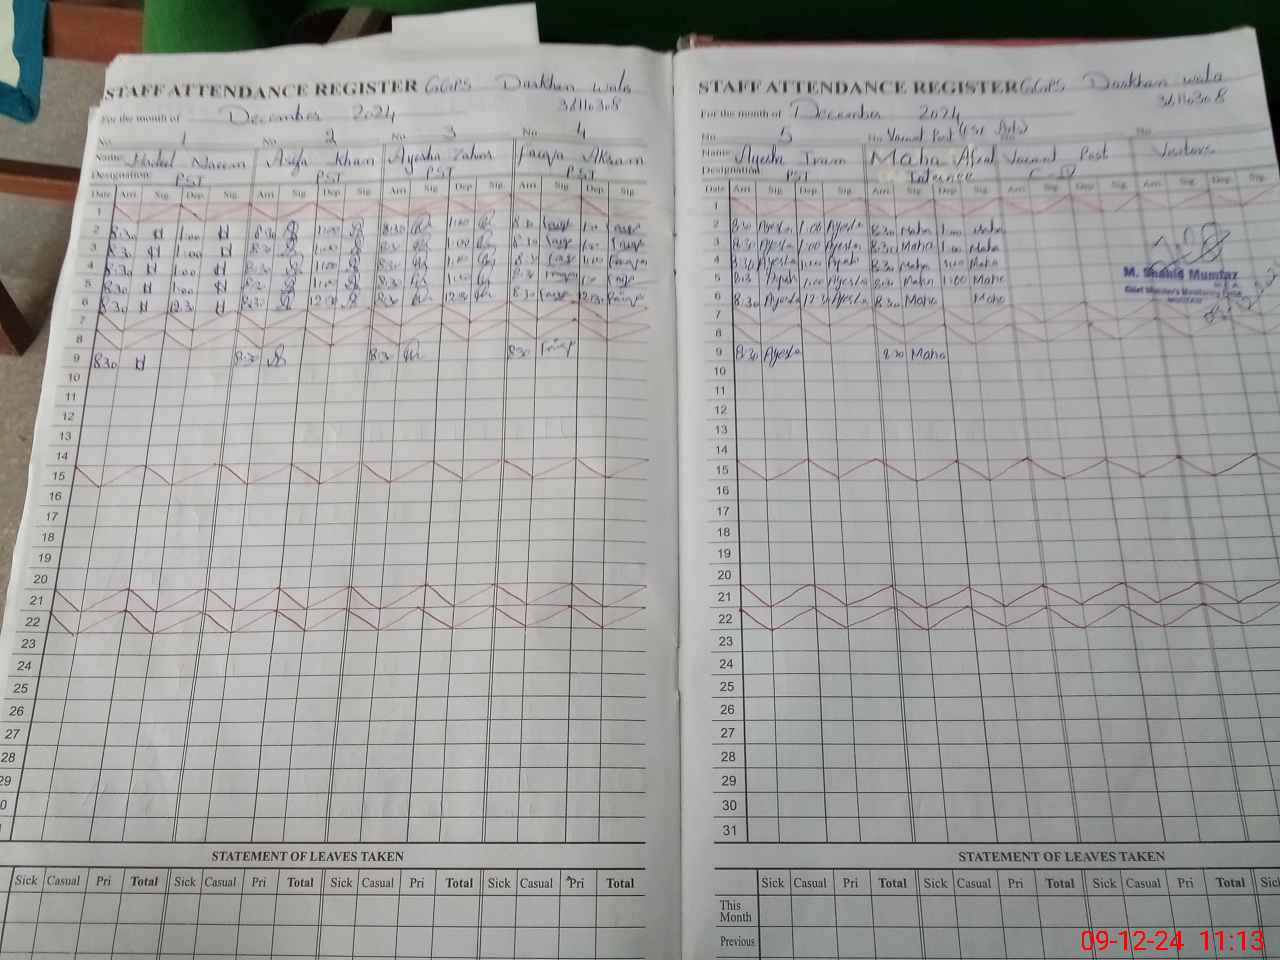 STAFF ATTENDANCE REGISTER GGPS Darkhan wala
For the month of December 2024
No 1 No 2 No 3 No 4
Name Naeem Asifa Khan Ayesha Zahra Akram
Designation PST PST PST PST
Date Arri Sig. Dep. Sig. Arri Sig. Dep Sig. Arri Sig. Dep Sig. Arri Sig. Dep. Sig.
1
2 8:30 H 1:00 H 8:30 1:00 8:30 1:00 8:30
3 8:30 H 1:00 H 8:30 1:00 8:30 1:00 8:30
4 8:30 H 1:00 H 8:30 1:00 8:30 1:00 8:30
5 8:30 H 1:00 H 8:30 1:00 8:30 1:00 8:30
6 8:30 H 12:30 H 8:30 12:30 8:30 12:30 8:30 12:30
7
8
9 8:30 H 8:30 8:30 8:30
10
11
12
13
14
15
16
17
18
19
20
21
22
23
24
25
26
27
28
29
STATEMENT OF LEAVES TAKEN
Sick Casual Pri Total Sick Casual Pri Total Sick Casual Pri Total Sick Casual Pri Total
STAFF ATTENDANCE REGISTER GGPS Darkhan wala
For the month of December 2024
No 5 No Vacant Post No
Name Ayesha Iram Maha Afzal Vacant Post Visitors
Designation PST Internee
Date Arri Sig. Dep Sig. Arri Sig. Dep Sig. Arri Sig. Dep Sig. Arri Sig. Dep Sig.
1
2 8:30 Ayesha 1:00 Ayesha 8:30 Maha 1:00 Maha
3 8:30 Ayesha 1:00 Ayesha 8:30 Maha 1:00 Maha
4 8:30 Ayesha 1:00 Ayesha 8:30 Maha 1:00 Maha
5 8:30 Ayesha 1:00 Ayesha 8:30 Maha 1:00 Maha
6 8:30 Ayesha 12:30 Ayesha 8:30 Maha Maha
M. Shahid Mumtaz
7
8
9 8:30 Ayesha 8:30 Maha
10
11
12
13
14
15
16
17
18
19
20
21
22
23
24
25
26
27
28
29
30
31
STATEMENT OF LEAVES TAKEN
Sick Casual Pri Total Sick Casual Pri Total Sick Casual Pri Total
This Month
Previous
09-12-24 11:13